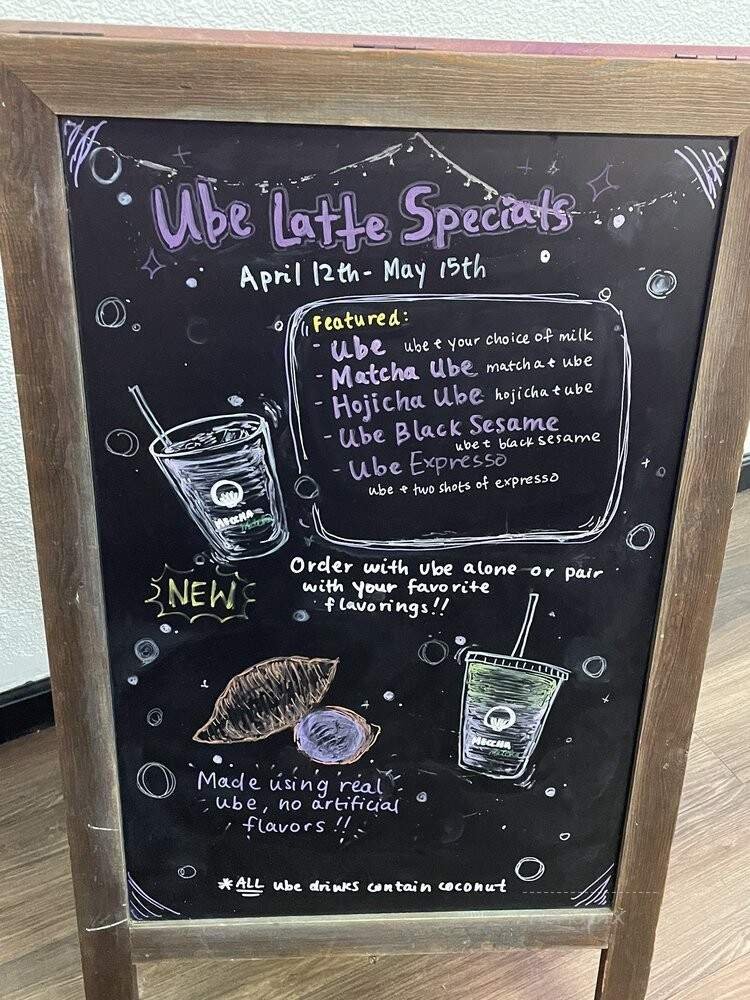 Ube Latte Specials
April 12th - May 15th
Featured:
- Ube ube + your choice of milk
- Matcha Ube matcha + ube
- Hojicha Ube hojicha + ube
- Ube Black Sesame
ube + black sesame
- Ube Expresso
ube + two shots of expresso
MECCHA
Matcha
Order with ube alone or pair
with your favorite
flavorings!!
NEW
MECCHA
Matcha
Made using real
ube, no artificial
flavors!!
*ALL ube drinks contain coconut